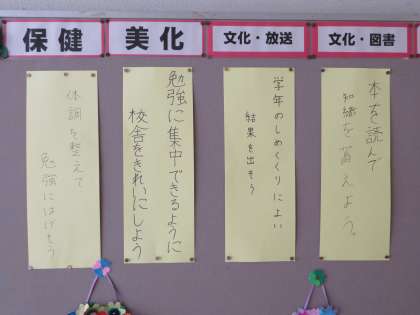 保健
美化
文化・放送
文化・図書
体調を整えて
勉強にはげもう
勉強に集中できるように
校舎をきれいにしよう
学年のしめくくりによい
結果を出そう
本を読んで
知識を蓄えよう。